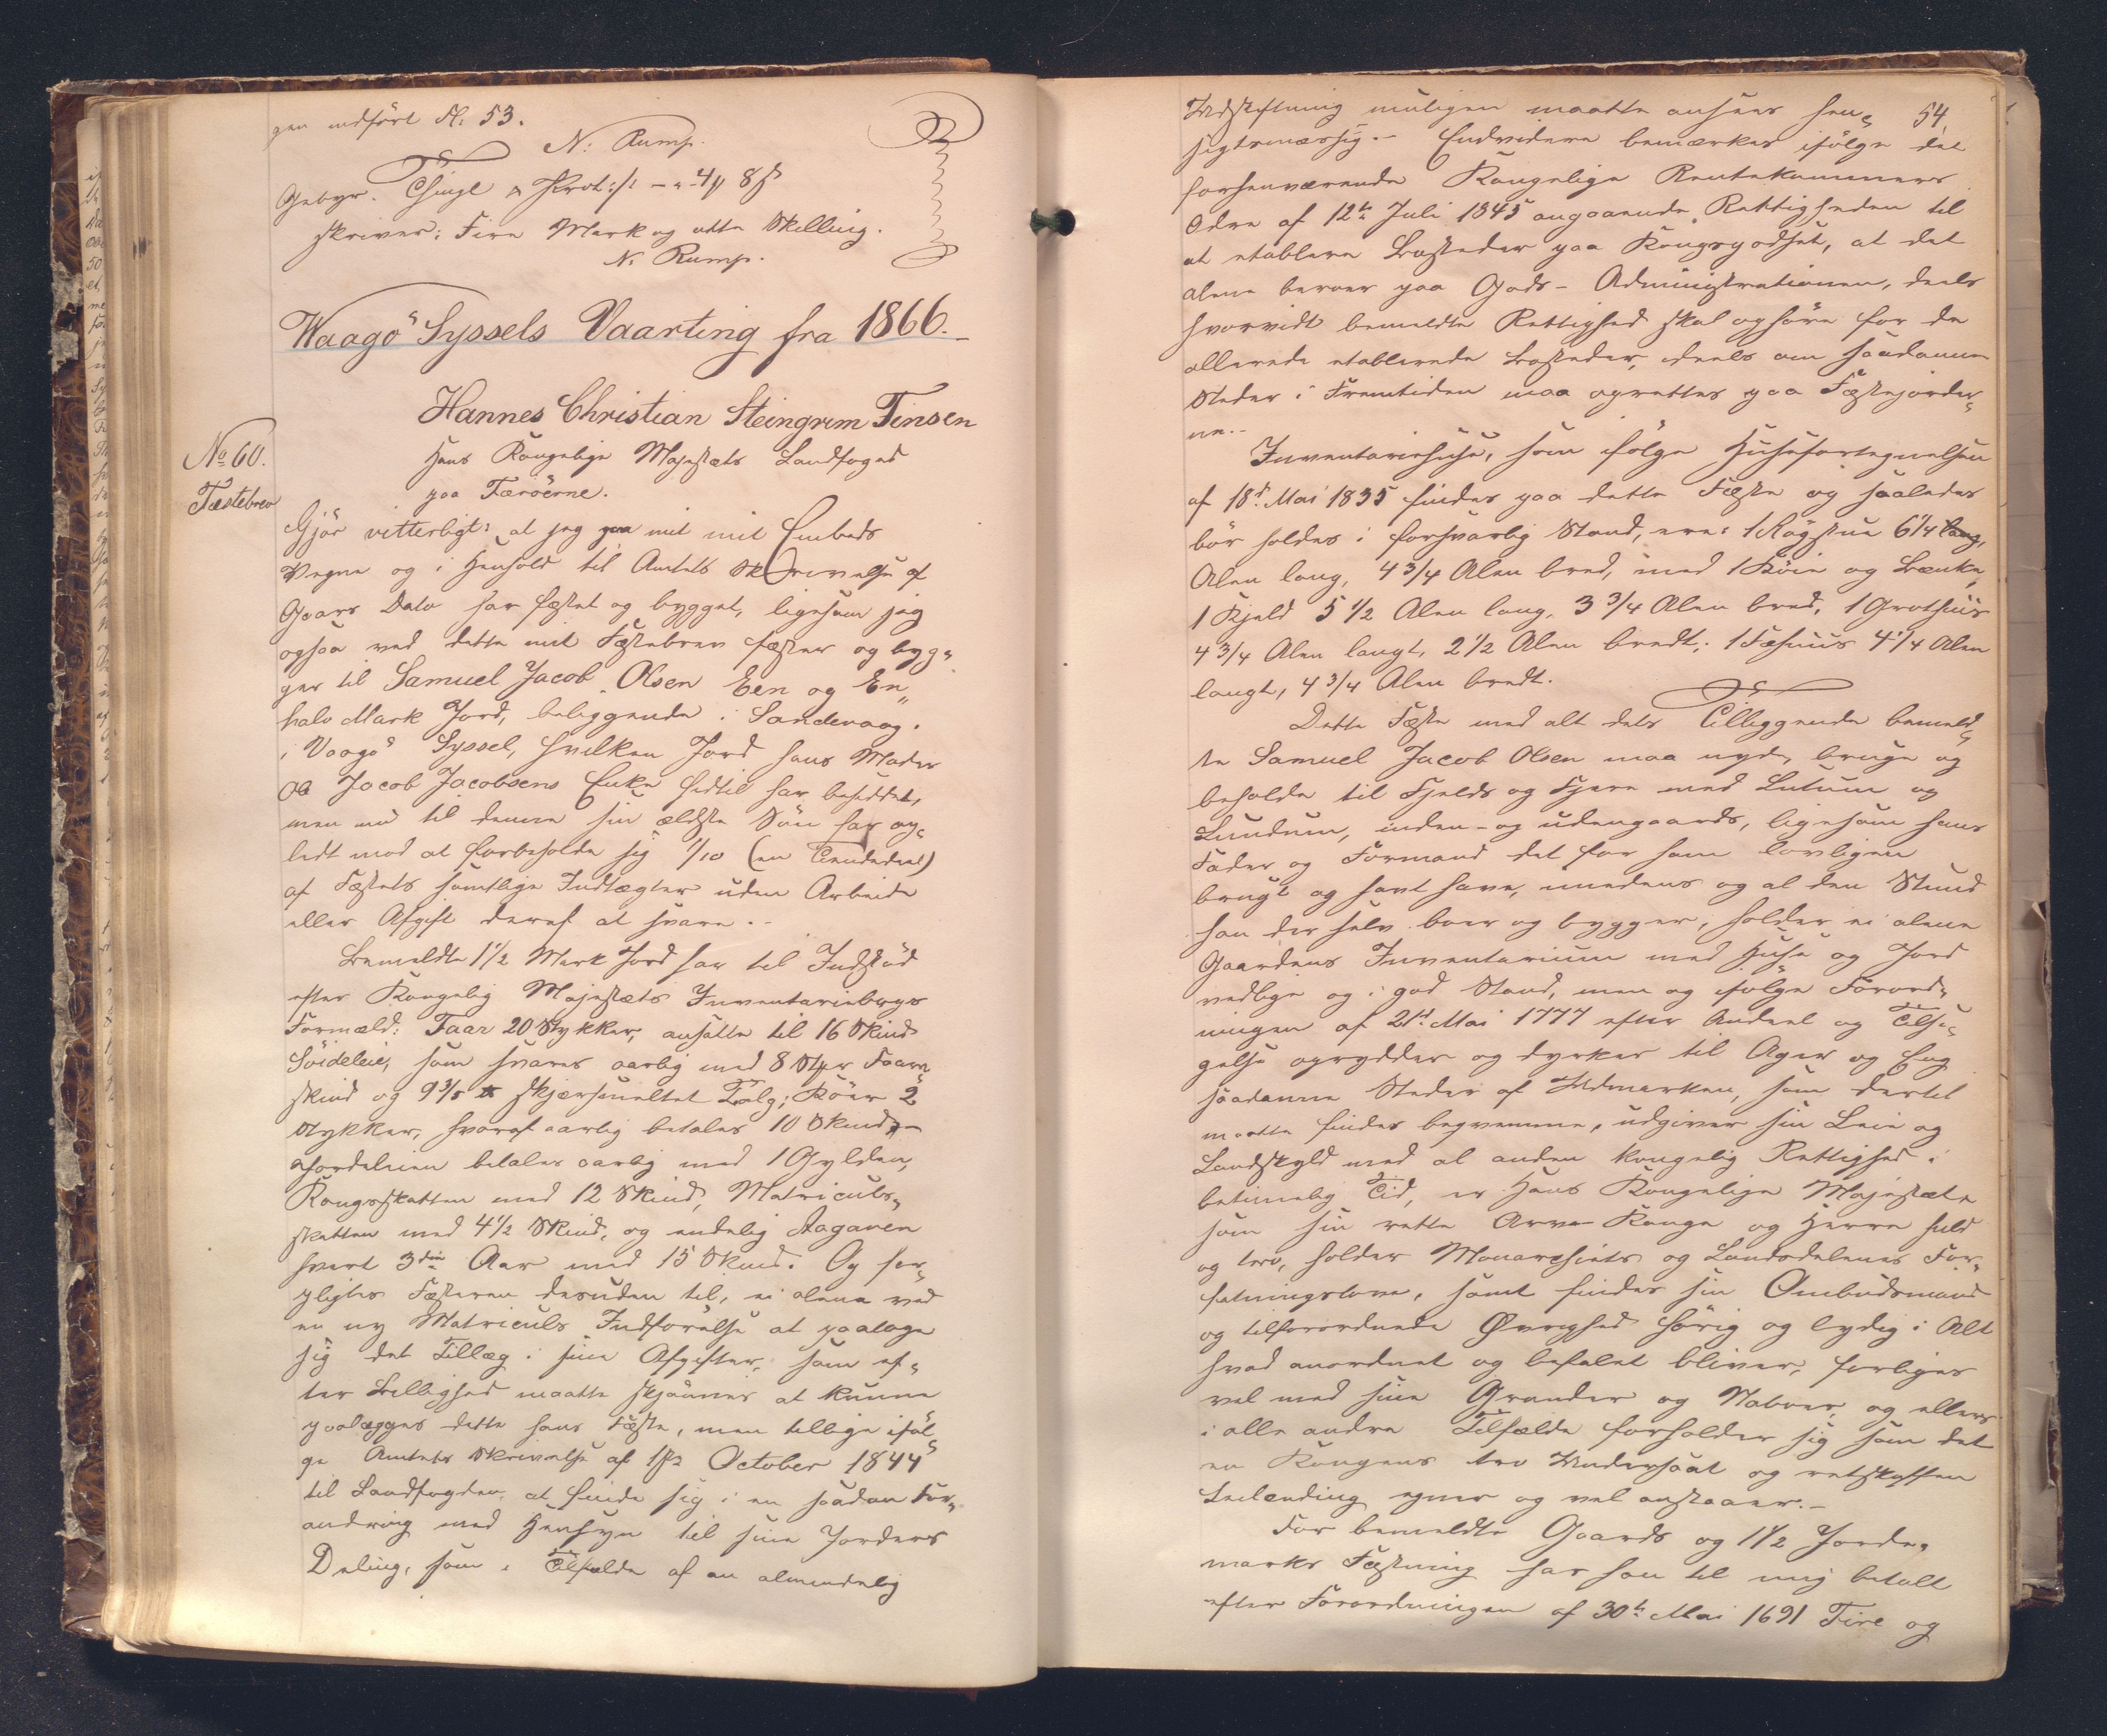 gen indført Fl. 53.
N. Rump.
Gebyr. Thingl & Prot:/: - " 4 # 8 ß
skriver: Fire Mark og otte Skilling.
N. Rump.
Waagø Syssels Vaarting fra 1866.
Hannes Christian Steingrim Finsen
Hans Kongelige Majestæts Landfoged
paa Færöerne.
No 60.
Fæstebrev
Gjør vitterligt: at jeg paa mit mit Embeds
Vegne og i Henhold til Amtets Skrivelse af
Gaars Dato har fæstet og bygget, ligesom jeg
ogsaa ved dette mit Fæstebrev fæster og byg-
ger til Samuel Jacob Olsen Een og En
halv Mark Jord, beliggende i Sandevaag.
i Vaagø Syssel, hvilken Jord hans Moder
Ole Jacob Jacobsens Enke hidtil har besiddet,
men nu til denne sin ældste Søn har op-
ladt mod at forbeholde sig 1/10 (en Tiendedeel)
af Fæstets samtlige Indtægter uden Arbeide
eller Afgift deraf at svare.-
Bemeldte 1½ Mark Jord har til Indstød
efter Kongelig Majestæts Inventariebogs
Formæld: Faar 20 Stykker, ansatte til 16 Skind
Søideleie, som svares aarlig med 8 Stkr Faare
skind og 9 3/5 ℔ skjærsmeltet Talg; Køer 2
Stykker, hvoraf aarlig betales 10 Skind,-
Jordeleien betales aarlig med 1 Gylden,
Kongsskatten med 12 Skind, Matriculs-
skatten med 4½ Skind, og endelig Aagaven
hvert 3die Aar med 15 Skind. Og for-
pligtes Fæsteren desuden til, ei alene ved
en ny Matriculs Indførelse at paatage
sig det Tillæg i sine Afgifter, som ef-
ter Billighed maatte skjønnes at kunne
paalægges dette hans Fæste, men tillige iføl-
ge Amtets Skrivelse af 1ste October 1844
til Landfogden, at finde sig i en saadan For-
andring med Hensyn til sine Jorders
Deling, som i Tilfælde af en almindelig
54.
Udskiftning muligen maatte ansees hen-
sigtsmæssig.- Endvidere bemærkes ifølge det
forhenværende Kongelige Rentekammers
Ordre af 12te Juli 1845 angaaende Rettigheden til
at etablere Bosteder paa Kongsgodset, at det
alene beroer paa Gods-Administrationen, deels
hvorvidt bemeldte Rettighed skal ophøre for de
allerede etablerede Bosteder, deels om saadanne
Steder i Fremtiden maa oprettes paa Fæstejorder-
ne.-
Inventariehuse, som følge Huusfortegnelsen
af 18d. Mai 1835 findes paa dette Fæste og saaledes
bør holdes i forsvarlig Stand, ere: 1 Røgstue 6¼ lang,
Alen lang, 4¾ Alen bred, med 1 Køie og Bænke,
1 Kjeld 5½ Alen lang, 3¾ Alen bred, 1 Grothuus
4¾ Alen langt, 2½ Alen bredt; 1 Fæhuus 4¼ Alen
langt, 4¾ Alen bredt.
Dette Fæste med alt dets Tilliggende bemeld-
te Samuel Jacob Olsen maa nyde, bruge og
beholde til Fjelds og Fjære med Lutum og
Lundum, inden- og udengaards, ligesom hans
Fader og Formand det før ham lovligen
brugt og havt have, imedens og al den Stund
han der selv boer og bygger, holder ei alene
Gaardens Inventarium med Huse og Jord
vedlige og i god Stand, men og ifølge Forord-
ningen af 21d. Mai 1777 efter Andeel og Tilsi-
gelse oprydder og dyrker til Ager og Eng
saadanne Steder af Udmarken, som dertil
maatte findes beqvemme, udgiver sin Leie og
Landskyld med al anden kongelig Rettighed i
betimelig Tid, er Hans Kongelige Majestæt
som sin rette Arve-Konge og Herre huld
og tro, holder Monarchiets og Landsdelenes For-
fatningslove, samt findes sin Ombudsmand
og tilforordnede Øvrighed hørig og lydig i Alt
hvad anordnet og befalet bliver, forliges
vel med sine Grander og Naboer, og ellers
i alle andre Tilfælde forholder sig som det
en Kongens tro Undersaat og retskaffen
Leilænding egner og vel anstaaer.-
For bemeldte Gaards og 1½ Jorde-
marks Fæstning har han til mig betalt
efter Forordningen af 30te Mai 1691 Fire og